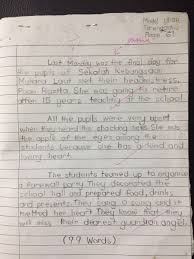 Model UPSR
Terengganu
Page 61
Last Monday was the final day for
the pupils of Sekolah Kebangsaan
Mutiara Laut met their headmistress,
Puan Rosita. She was going to retire
after 15 years teaching at the school.
All the pupils were very upset
when they heard the shocking news. She was
the apple of the eyes among the
students because she has a kind and
loving heart.
The students teamed up to organise
a farewell party. They decorated the
school hall and prepared food, drinks,
and presents. They sang a song and it
melted her heart. They know that they
will miss their dearest guardian angel.
(99 Words)